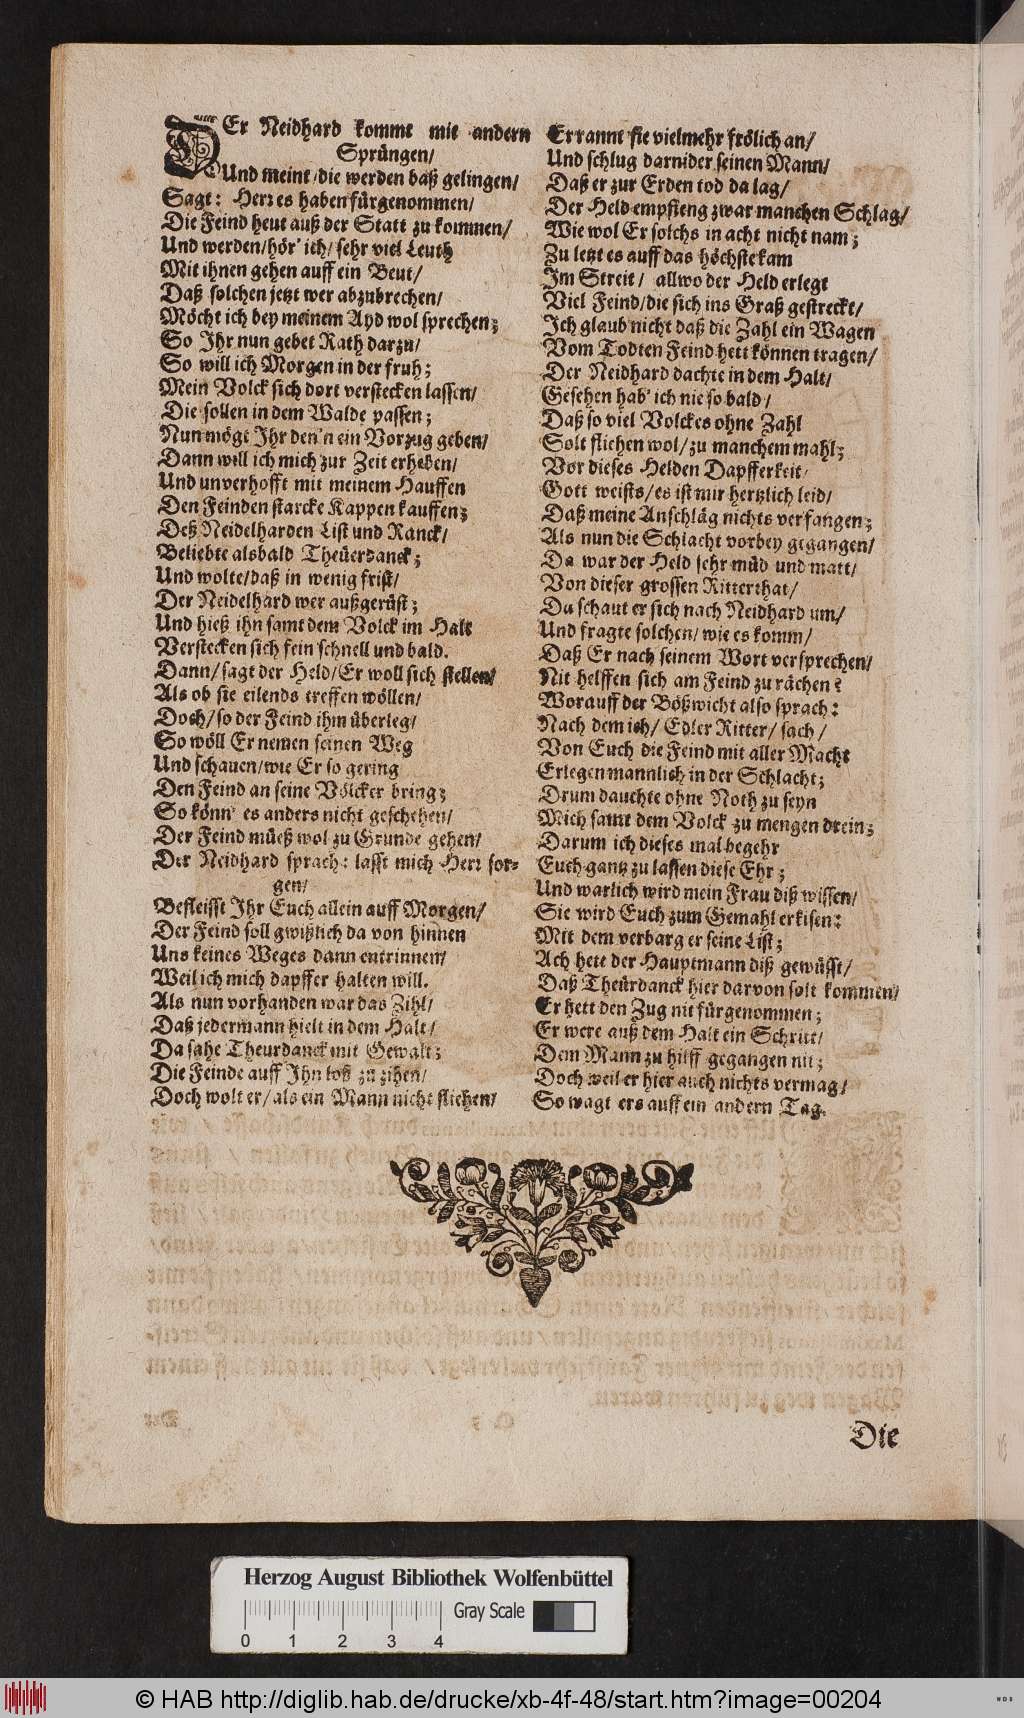 DEr Neidhard kommt mit andern
Sprüngen/
Und meint/die werden baß gelingen/
Sagt: Herr es haben fürgenommen/
Die Feind heut auß der Statt zu kommen/
Und werden/hör' ich/sehr viel Leuth
Mit ihnen gehen auff ein Beut/
Daß solchen jetzt wer abzubrechen/
Möcht ich bey meinem Ayd wol sprechen;
So Ihr nun gebet Rath darzu/
So will ich Morgen in der fruh;
Mein Volck sich dort verstecken lassen/
Die sollen in dem Walde passen;
Nun mögt Ihr den'n ein Vorzug geben/
Dann will ich mich zur Zeit erheben/
Und unverhofft mit meinem Hauffen
Den Feinden starcke Kappen kauffen;
Deß Neidelharden List und Ranck/
Beliebte alsbald Theürdanck;
Und wolte/daß in wenig frist/
Der Neidelhard wer außgerüst;
Und hieß ihn samt dem Volck im Halt
Verstecken sich fein schnell und bald.
Dann/sagt der Held/Er woll sich stellen/
Als ob sie eilends treffen wöllen/
Doch/so der Feind ihm überleg/
So wöll Er nemen seinen Weg
Und schauen/wie Er so gering
Den Feind an seine Völcker bring;
So könn' es anders nicht geschehen/
Der Feind müeß wol zu Grunde gehen/
Der Neidhard sprach: lasst mich Herr sor-
gen/
Befleisst Ihr Euch allein auff Morgen/
Der Feind soll gwißlich da von hinnen
Uns keines Weges dann entrinnen/
Weil ich mich dapffer halten will.
Als nun vorhanden war das Zihl/
Daß jedermann hielt in dem Halt/
Da sahe Theurdanck mit Gewalt;
Die Feinde auff Ihn loß zu zihen/
Doch wolt er/als ein Mann nicht fliehen/
Er rannt sie vielmehr frölich an/
Und schlug darnider seinen Mann/
Daß er zur Erden tod da lag/
Der Held empfieng zwar manchen Schlag/
Wie wol Er solchs in acht nicht nam;
Zu letzt es auff das höchste kam
Im Streit/ allwo der Held erlegt
Viel Feind/die sich ins Graß gestreckt/
Ich glaub nicht daß die Zahl ein Wagen
Vom Todten Feind hett können tragen/
Der Neidhard dachte in dem Halt/
Gesehen hab' ich nie so bald/
Daß so viel Volckes ohne Zahl
Solt fliehen wol/zu manchem mahl;
Vor dieses Helden Dapfferkeit/
Gott weists/es ist mir hertzlich leid/
Daß meine Anschläg nichts verfangen;
Als nun die Schlacht vorbey gegangen/
Da war der Held sehr müd und matt/
Von dieser grossen Ritterthat/
Da schaut er sich nach Neidhard um/
Und fragte solchen/wie es komm/
Daß Er nach seinem Wort versprechen/
Nit helffen sich am Feind zu rächen?
Worauff der Bößwicht also sprach:
Nach dem ich/ Edler Ritter/ sach/
Von Euch die Feind mit aller Macht
Erlegen mannlich in der Schlacht;
Drum dauchte ohne Noth zu seyn
Mich samt dem Volck zu mengen drein;
Darum ich dieses mal begehr
Euch gantz zu lassen diese Ehr;
Und warlich wird mein Frau diß wissen/
Sie wird Euch zum Gemahl erkisen:
Mit dem verbarg er seine List;
Ach hett der Hauptmann diß gewüsst/
Daß Theürdanck hier darvon solt kommen/
Er hett den Zug nit fürgenommen;
Er were auß dem Halt ein Schritt/
Dem Mann zu hilff gegangen nit;
Doch weil er hier auch nichts vermag/
So wagt ers auff ein andern Tag.
Die
Herzog August Bibliothek Wolfenbüttel
Gray Scale
0 1 2 3 4
© HAB http://diglib.hab.de/drucke/xb-4f-48/start.htm?image=00204